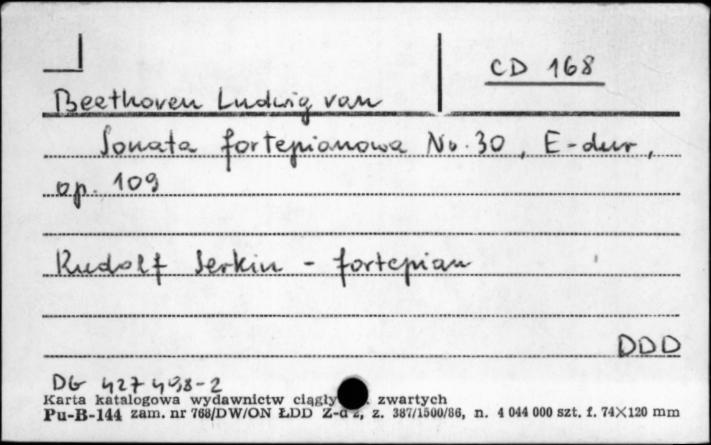 CD 168
Beethoven Ludwig van
Sonata fortepianowa No. 30, E-dur,
op. 109
Rudolf Serkin - fortepian
DDD
DG 427 498-2
Karta katalogowa wydawnictw ciągły zwartych
Pu-B-144 zam. nr 768/DW/ON ŁDD Z-d 2, z. 387/1500/86, n. 4 044 000 szt. f. 74×120 mm